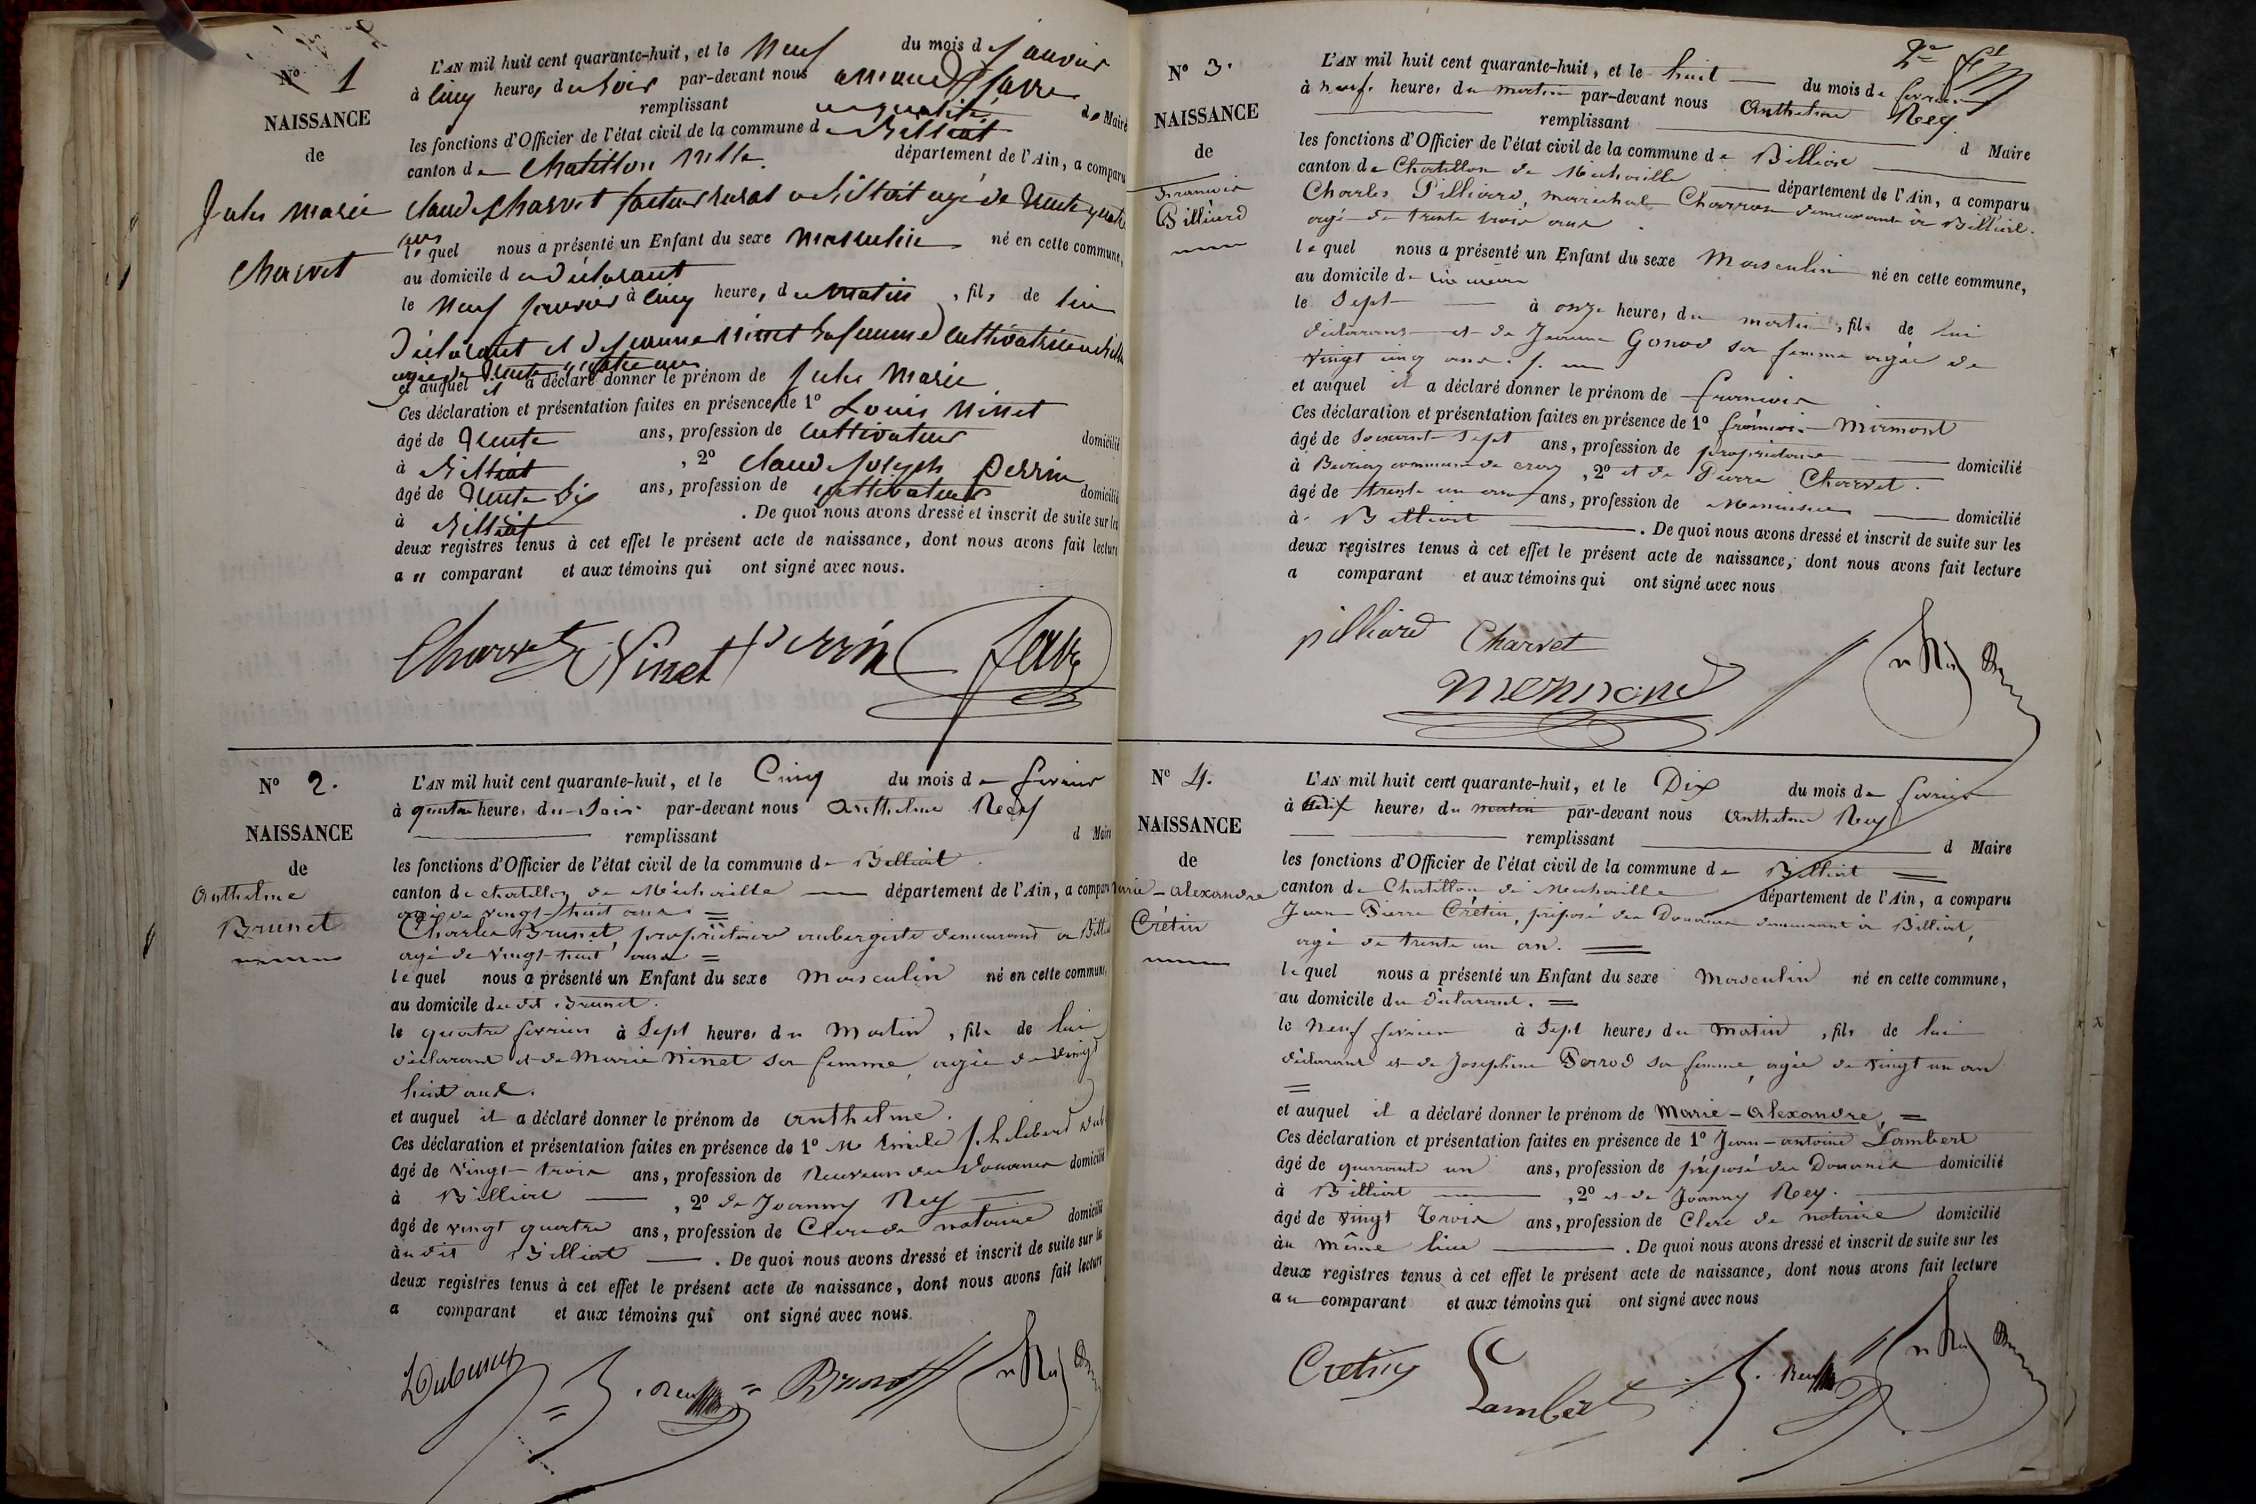 N° 1
NAISSANCE
de
Jules Marie
Charvet
L'AN mil huit cent quarante-huit, et le Neuf du mois de Janvier
à Cinq heures du Soir par-devant nous Favre
remplissant en qualité de Maire
les fonctions d'Officier de l'état civil de la commune de Billiat
canton de Chatillon Mlle département de l'Ain, a comparu
Claude Charvet facteur rural à Billiat agé de trente quatre
ans
lequel nous a présenté un Enfant du sexe Masculin né en cette commune,
au domicile du Déclarant
le Neuf Janvier à Cinq heures du Matin, fils de lui
Déclarant et de Jeanne Ninet sa femme Cultivatrice à Billiat
agée de trente quatre ans
et auquel il a déclaré donner le prénom de Jules Marie
Ces déclaration et présentation faites en présence de 1° Louis Ninet
âgé de Trente ans, profession de Cultivateur domicilié
à Billiat, 2° Claude Joseph Perrin
âgé de Trente Six ans, profession de Cultivateur domicilié
à Billiat. De quoi nous avons dressé et inscrit de suite sur les
deux registres tenus à cet effet le présent acte de naissance, dont nous avons fait lecture
a " comparant et aux témoins qui ont signé avec nous.
Charvet Ninet Perrin Favre
N° 2.
NAISSANCE
de
Anthelme
Brunet
L'AN mil huit cent quarante-huit, et le Cinq du mois de fevrier
à quatre heures du Soir par-devant nous Anthelme Rey
remplissant d Maire
les fonctions d'Officier de l'état civil de la commune de Billiat.
canton de Chatillon de Michaille département de l'Ain, a comparu
agé de vingt-huit ans =
Charles Brunet, proprietaire aubergiste demeurant à Billiat
agé de vingt huit ans =
lequel nous a présenté un Enfant du sexe Masculin né en cette commune,
au domicile dudit Brunet.
le quatre fevrier à Sept heures du Matin, fils de lui
déclarant et de Marie Ninet sa femme, agée de vingt
huit ans.
et auquel il a déclaré donner le prénom de Anthelme.
Ces déclaration et présentation faites en présence de 1° Mr Emile Philibert
âgé de vingt-trois ans, profession de Receveur des Douanes domicilié
à Billiat, 2° de Joanny Rey
âgé de vingt quatre ans, profession de Clerc de notaire domicilié
àudit Billiat. De quoi nous avons dressé et inscrit de suite sur les
deux registres tenus à cet effet le présent acte de naissance, dont nous avons fait lecture
a comparant et aux témoins qui ont signé avec nous.
J. Rey Brunet
N° 3.
NAISSANCE
de
François
Pilliard
2e ft
L'AN mil huit cent quarante-huit, et le huit du mois de fevrier
à neuf heures du matin par-devant nous Anthelme Rey
remplissant d Maire
les fonctions d'Officier de l'état civil de la commune de Billiat
canton de Chatillon de Michaille département de l'Ain, a comparu
Charles Pilliard, maréchal Charron demeurant à Billiat.
agé de trente trois ans.
lequel nous a présenté un Enfant du sexe Masculin né en cette commune,
au domicile de lui même
le Sept à onze heures du matin, fils de lui
déclarant et de Jeanne Gonod sa femme agée de
vingt cinq ans.
et auquel il a déclaré donner le prénom de François
Ces déclaration et présentation faites en présence de 1° françois Mermont
âgé de Soixant Sept ans, profession de propriétaire domicilié
à commune de, 2° et de Pierre Charvet.
âgé de trente un ans ans, profession de Menuisier domicilié
à Billiat. De quoi nous avons dressé et inscrit de suite sur les
deux registres tenus à cet effet le présent acte de naissance, dont nous avons fait lecture
a comparant et aux témoins qui ont signé avec nous
pilliard Charvet
N° 4.
NAISSANCE
de
Marie-Alexandre
Crétin
L'AN mil huit cent quarante-huit, et le Dix du mois de fevrier
à dix heures du matin par-devant nous Anthelme Rey
remplissant d Maire
les fonctions d'Officier de l'état civil de la commune de Billiat =
canton de Chatillon de Michaille département de l'Ain, a comparu
Jean-Pierre Crétin, préposé des Douanes demeurant à Billiat,
agé de trente un an. =
lequel nous a présenté un Enfant du sexe Masculin né en cette commune,
au domicile du déclarant. =
le Neuf fevrier à Sept heures du matin, fils de lui
déclarant et de Josephine Perrod sa femme, agée de vingt un an
=
et auquel il a déclaré donner le prénom de Marie-Alexandre, =
Ces déclaration et présentation faites en présence de 1° Jean-antoine Lambert
âgé de quarante un ans, profession de préposé des Douanes domicilié
à Billiat, 2° et de Joanny Rey.
âgé de vingt trois ans, profession de Clerc de notaire domicilié
àu même lieu. De quoi nous avons dressé et inscrit de suite sur les
deux registres tenus à cet effet le présent acte de naissance, dont nous avons fait lecture
au comparant et aux témoins qui ont signé avec nous
Cretin Lambert J. Rey